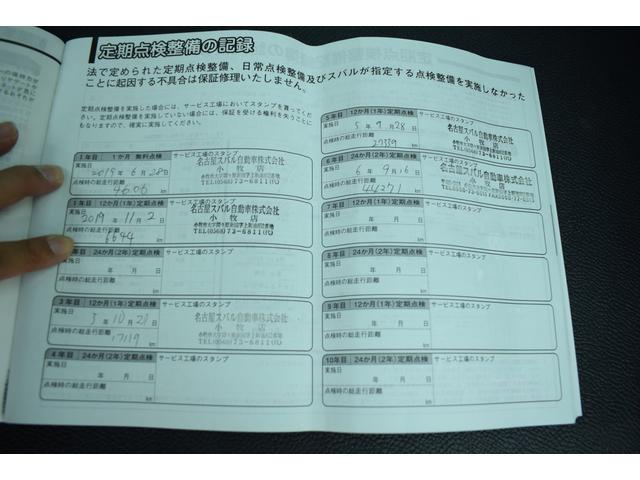 定期点検整備の記録
法で定められた定期点検整備、日常点検整備及びスバルが指定する点検整備を実施しなかった
ことに起因する不具合は保証修理いたしません。
定期点検整備を実施した場合には、サービス工場においてスタンプを貰ってく
ださい。定期点検整備を実施していない場合には、保証を受ける権利を失うことに
もなりますので、確実に実施してください。
1年目 1か月 無料点検 サービス工場のスタンプ
実施日
年 6月 日
点検時の総走行距離
km
名古屋スバル自動車株式会社
小牧店
TEL(0568)73-6811㈹
1年目 12か月(1年)定期点検 サービス工場のスタンプ
実施日
2019年 11月 2日
点検時の総走行距離
6644 km
名古屋スバル自動車株式会社
小牧店
TEL(0568)73-6811㈹
年目 24か月(2年)定期点検 サービス工場のスタンプ
実施日
年 月 日
点検時の総走行距離
km
3年目 12か月(1年)定期点検 サービス工場のスタンプ
実施日
3年 10月 日
点検時の総走行距離
km
名古屋スバル自動車株式会社
小牧店
TEL(0568)73-6811㈹
4年目 24か月(2年)定期点検 サービス工場のスタンプ
実施日
年 月 日
点検時の総走行距離
km
5年目 12か月(1年)定期点検 サービス工場のスタンプ
実施日
5年 9月 28日
点検時の総走行距離
km
名古屋スバル自動車株式会社
小牧店
6年目 24か月(2年)定期点検 サービス工場のスタンプ
実施日
6年 9月 16日
点検時の総走行距離
44271 km
名古屋スバル自動車株式会社
小牧店
7年目 12か月(1年)定期点検 サービス工場のスタンプ
実施日
年 月 日
点検時の総走行距離
km
8年目 24か月(2年)定期点検 サービス工場のスタンプ
実施日
年 月 日
点検時の総走行距離
km
9年目 12か月(1年)定期点検 サービス工場のスタンプ
実施日
年 月 日
点検時の総走行距離
km
10年目 24か月(2年)定期点検 サービス工場のスタンプ
実施日
年 月 日
点検時の総走行距離
km